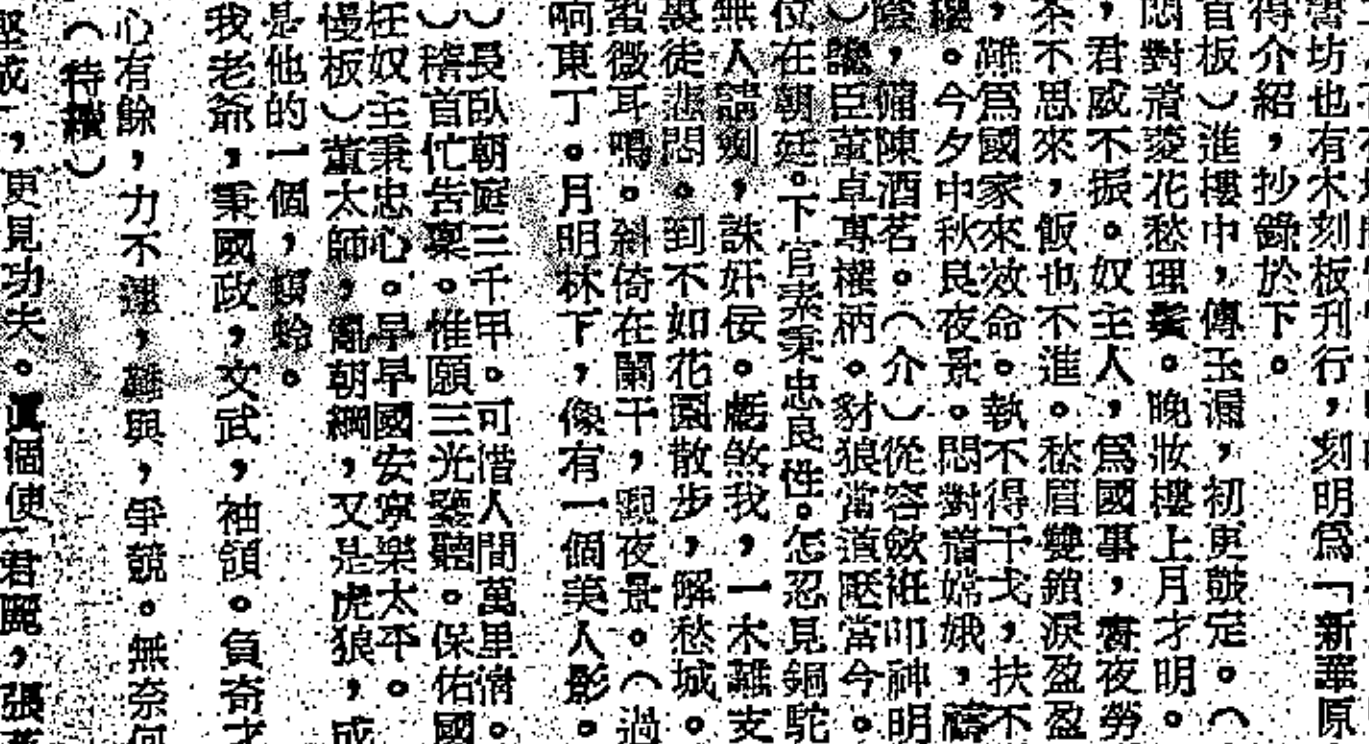 書坊也有木刻板刊行，刻明爲「新華原
得介紹，抄錄於下。
首板）進樓中，傳玉漏，初更鼓定。（
悶對着菱花愁理鬢。晚妝樓上月才明。
，君威不振。奴主人，爲國事，晝夜勞
茶不思來，飯也不進。愁眉雙鎖淚盈盈
，難爲國家來效命。執不得干戈，扶不
。今夕中秋良夜景。悶對着嫦娥，禱
陰，備陳酒茗。（介）從容斂衽叩神明
）讒臣董卓專權柄。豺狼當道壓當今。
位在朝廷。下官素秉忠良性。怎忍見銅駝
無人請劍，誅奸佞。麽煞我，一木難支
裏徒悲悶。到不如花園散步，解愁城。
蛩微耳鳴。斜倚在闌干，觀夜景。（過
响東丁。月明林下，像有一個美人影。
）長臥朝庭三千甲。可惜人間萬里情。
）稽首忙告稟。惟願三光鑒聽。保佑國
枉奴主秉忠心。早早國安寧樂太平。
慢板）董太師，亂朝綱，又是虎狼，成
是他的一個，螟蛉。
我老爺，秉國政，文武，袖領。負奇才
心有餘，力不逮，難與，爭競。無奈何
（待續）
堅成」，更見功夫。眞個使君麗，張